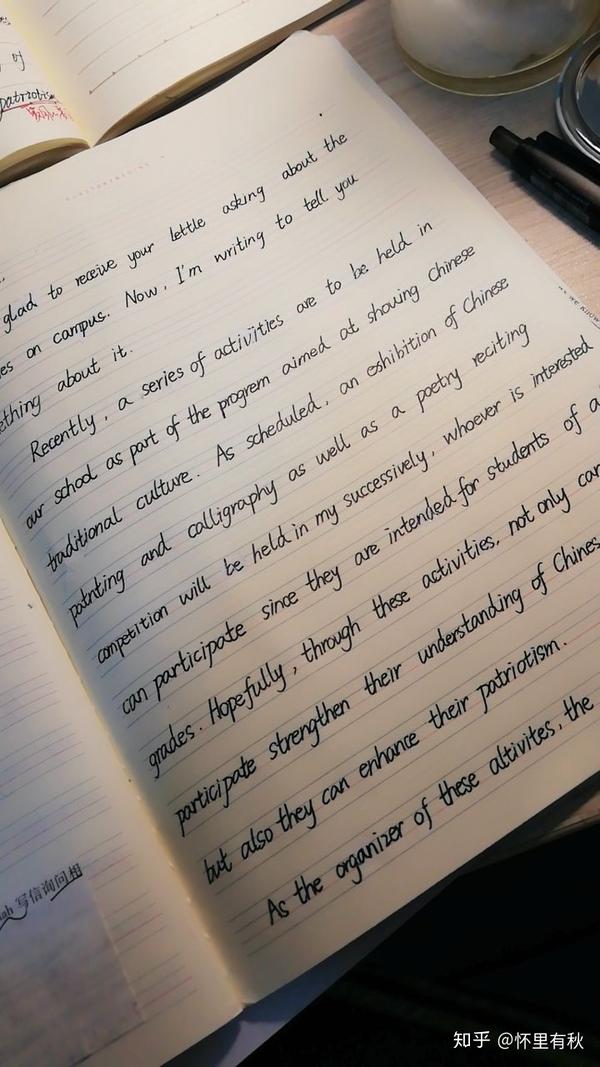 of
patriotis
glad to receive your lettle asking about the
es on campus. Now, I'm writing to tell you
ething about it.
Recently, a series of activities are to be held in
our school as part of the progrem aimed at showing Chinese
traditional culture. As scheduled, an exhibition of Chinese
patnting and calligraphy as well as a poetry reciting
competition will be held in my successively, whoever is interested
can participate since they are intended for students of a
grades. Hopefully, through these activities, not only can
participate strengthen their understanding of Chines
but also they can enhance their patriotism.
As the organizer of these altivites, the
写信询问相
知乎 @怀里有秋